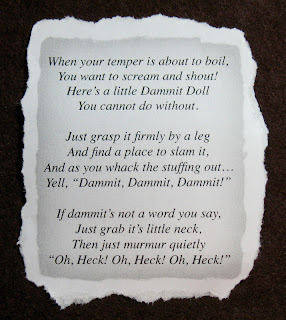 When your temper is about to boil,
You want to scream and shout!
Here's a little Dammit Doll
You cannot do without.
Just grasp it firmly by a leg
And find a place to slam it,
And as you whack the stuffing out…
Yell, “Dammit, Dammit, Dammit!”
If dammit's not a word you say,
Just grab it's little neck,
Then just murmur quietly
“Oh, Heck! Oh, Heck! Oh, Heck!”